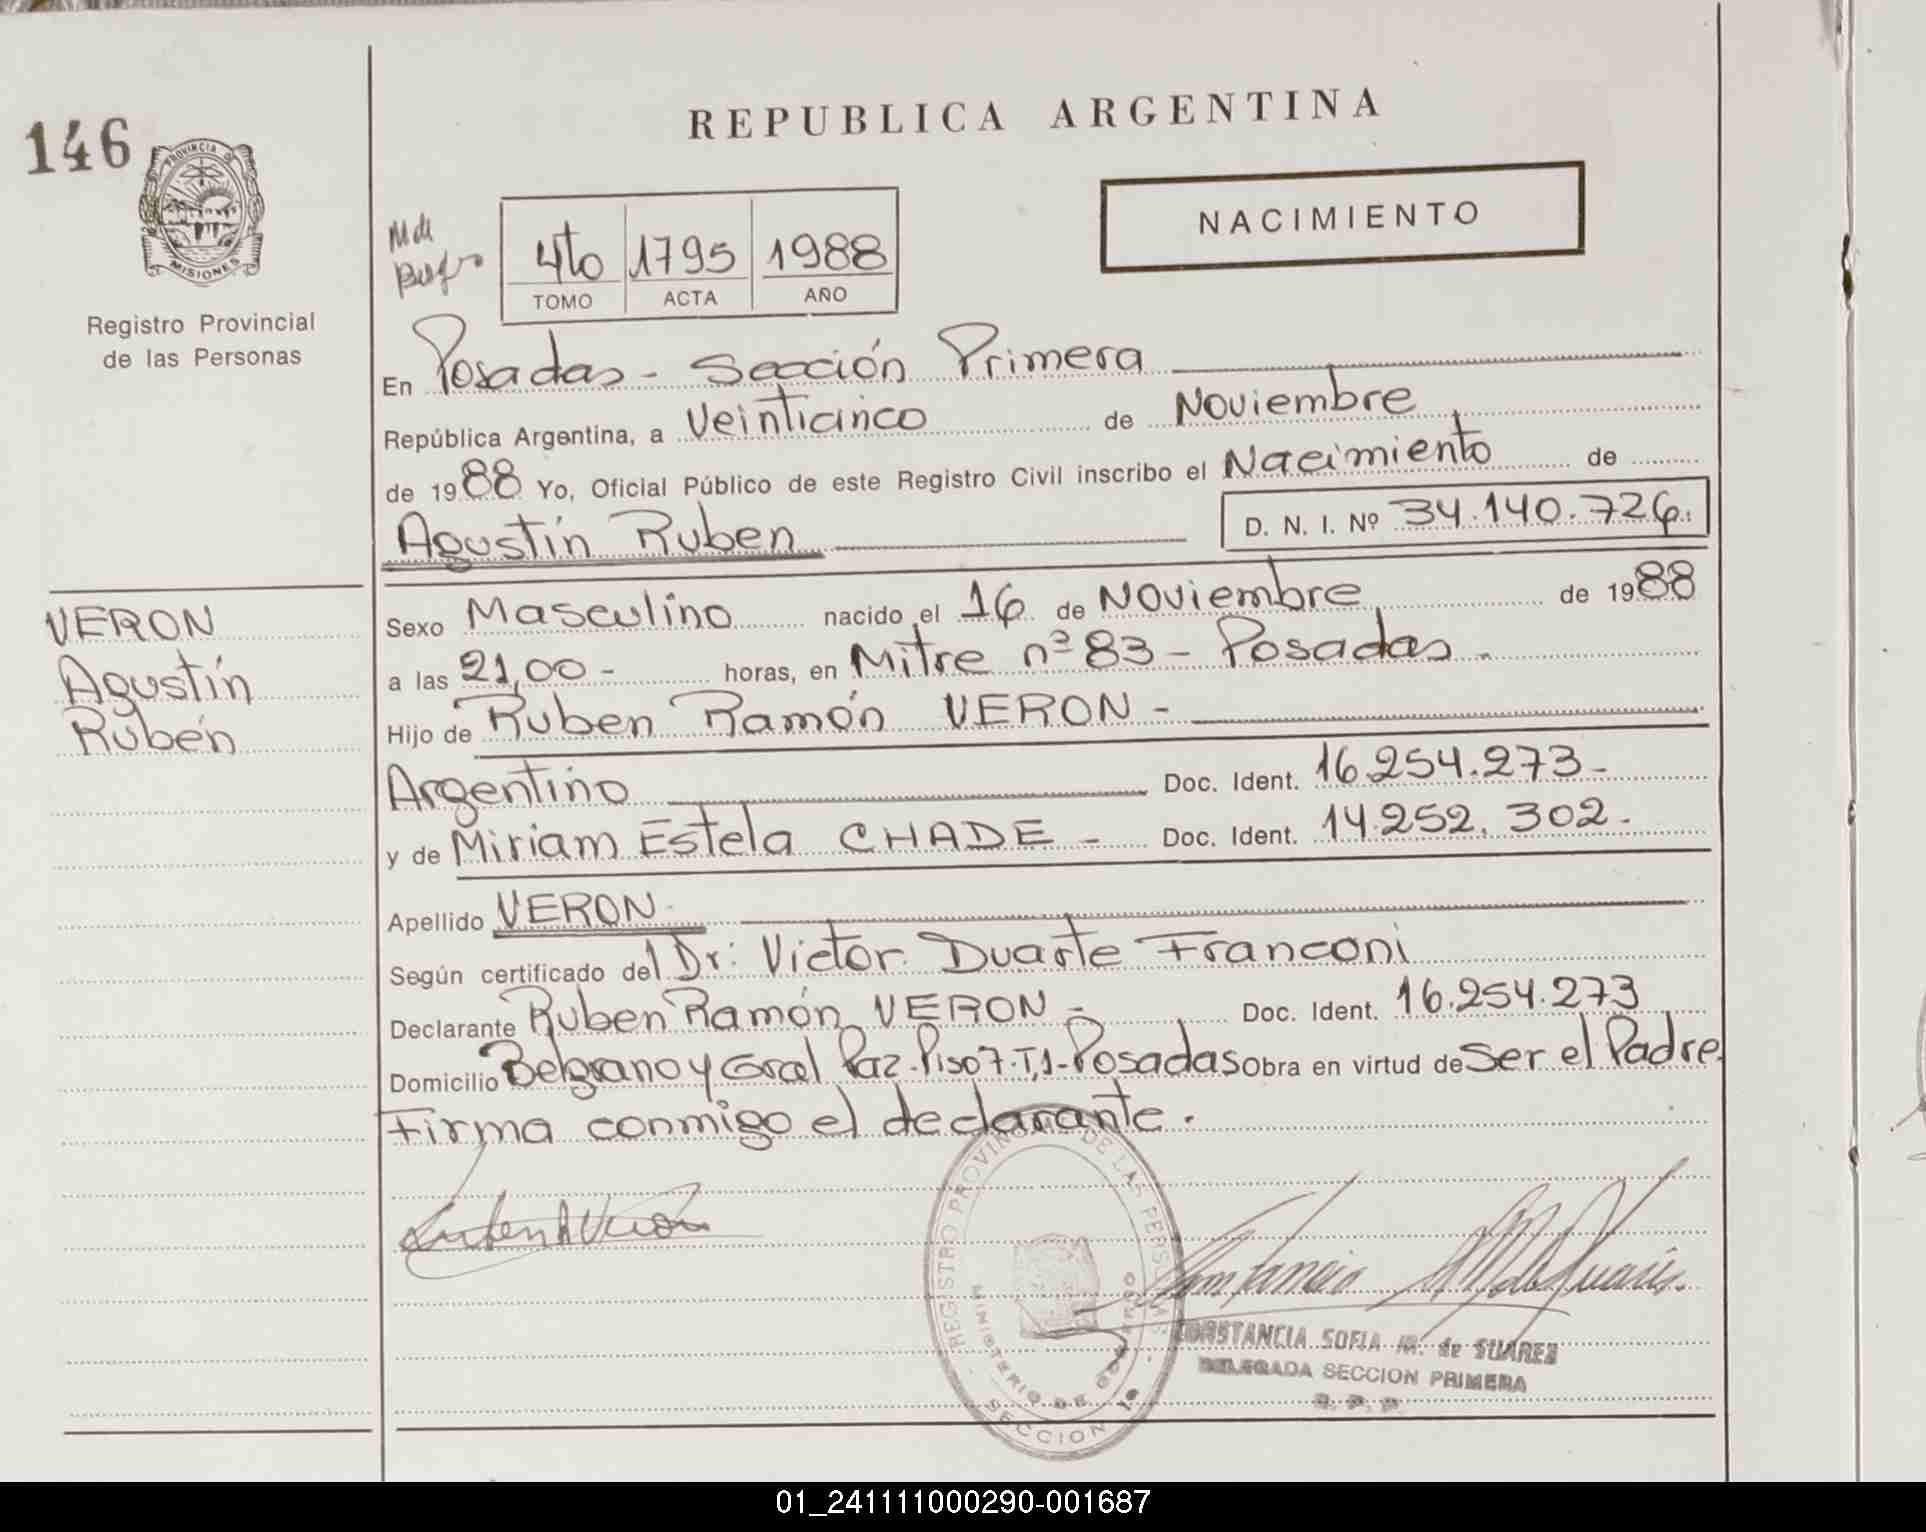 146
REPUBLICA ARGENTINA
NACIMIENTO
PROVINCIA D
MISIONES
Registro Provincial
de las Personas
4to 1795 1988
TOMO ACTA AÑO
En Posadas - Sección Primera
República Argentina, a Veinticinco de Noviembre
de 1988 Yo, Oficial Público de este Registro Civil inscribo el Nacimiento de
Agustín Ruben D. N. I. Nº 34.140.726.
VERON
Agustín
Rubén
Sexo Masculino nacido el 16 de Noviembre de 1988
a las 21,00 - horas, en Mitre nº 83 - Posadas -
Hijo de Ruben Ramón VERON -
Argentino Doc. Ident. 16.254.273 -
y de Miriam Estela CHADE - Doc. Ident. 14.252.302 -
Apellido VERON
Según certificado del Dr: Victor Duarte Franconi
Declarante Ruben Ramón VERON - Doc. Ident. 16.254.273
Domicilio Belgrano y Gral Paz - Piso 7 - T,1 - Posadas Obra en virtud de Ser el Padre.
Firma conmigo el declarante.
REGISTRO PROVINCIAL DE LAS PERSONAS
MINISTERIO DE GOBIERNO
SECCION 1º
CONSTANCIA SOFIA M. de SUAREZ
DELEGADA SECCION PRIMERA
R. P. P.
01_241111000290-001687